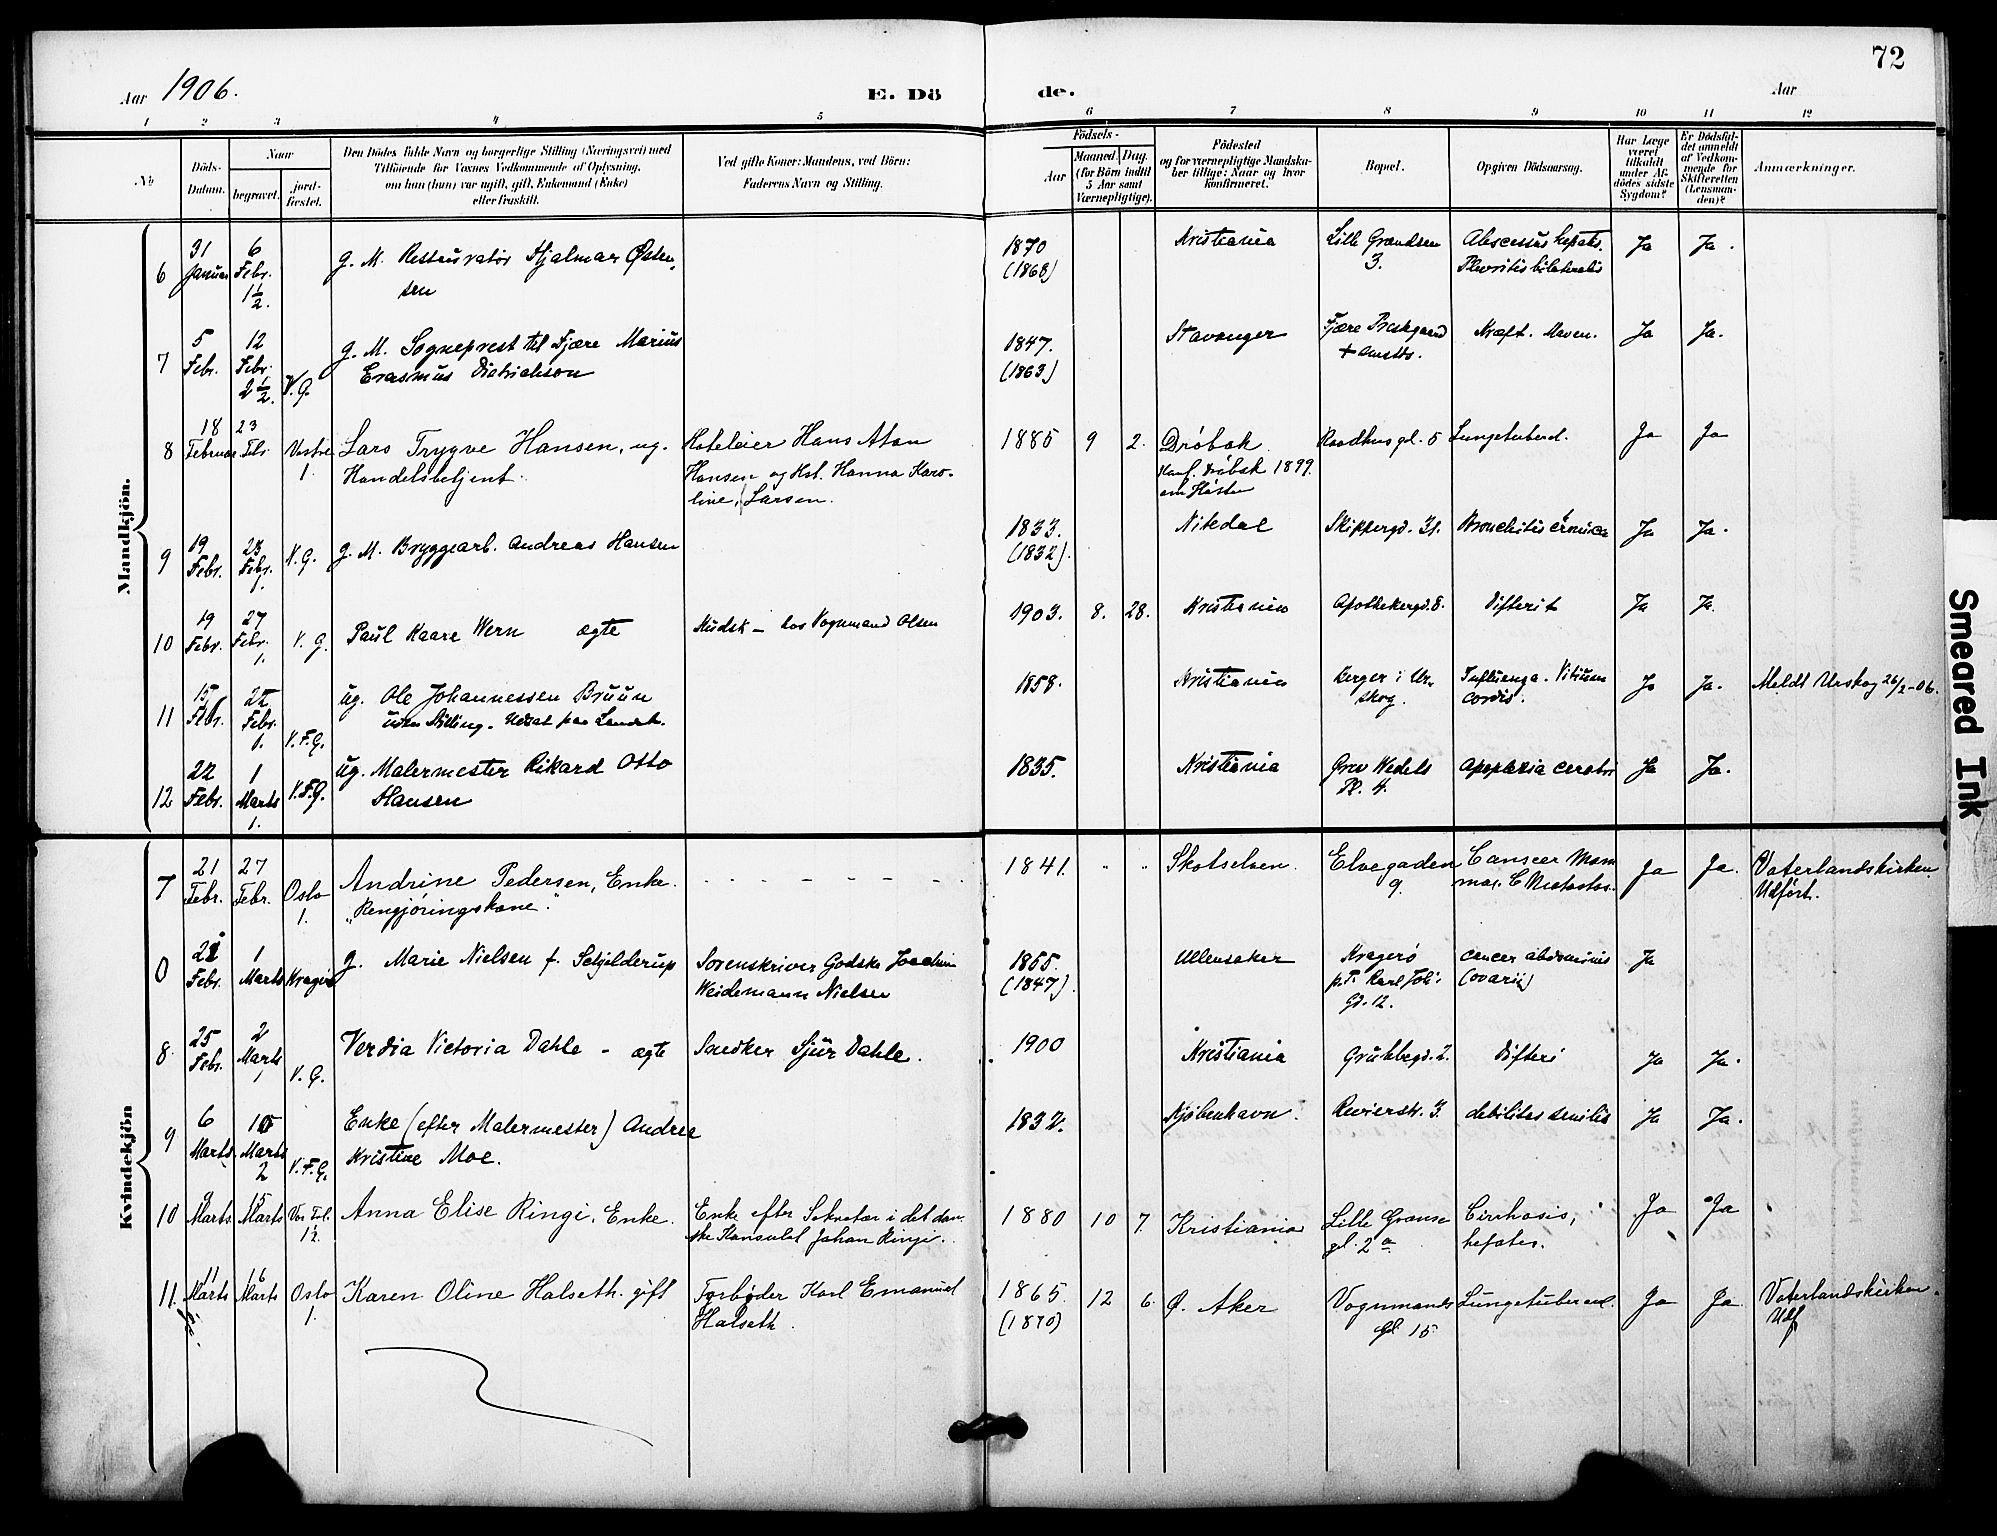 72
Aar 1906.
E. Dö de.
Aar
1 2 3 4 5 6 7 8 9 10 11 12
No
Döds-
Datum.
Naar
begravet.
jord-
fæstet.
Den Dödes fulde Navn og borgerlige Stilling (Næringsvei) med
Tilföiende for Voxnes Vedkommende af Oplysning,
om han (hun) var ugift, gift, Enkemand (Enke)
eller fraskilt.
Ved gifte Koner: Mandens, ved Börn:
Faderens Navn og Stilling.
Födsels-
Aar
Maaned. Dag.
(for Börn indtil
5 Aar samt
Værnepligtige).
Födested
og for værnepligtige Mandska-
ber tillige: Naar og hvor
konfirmeret.
Bopæl.
Opgiven Dödsaarsag.
Har Læge
været
tilkaldt
under Af-
dödes sidste
Sygdom?
Er Dödsfal-
det anmeldt
af Vedkom-
mende for
Skifteretten
(Lensman-
den)?
Anmærkninger.
Mandkjön.
6 31 Januar 6 Febr. 1½
g. M. Restauratør Hjalmar Østen-
sen
1870 (1868)
Kristiania
Lille Grændsen
3.
Abscessus hepatis.
Pleuritis bilateralis
Ja Ja.
7 5 Febr. 12 Febr. 2½. V. G.
g. M. Sogneprest til Fjære Marius
Erasmus Dietrichson
1847. (1863)
Stavanger
Fjære Prestgaard
+ Amstds.
Kræft. Maven.
Ja Ja.
8 18 Februar 23 Febr. Vestre 1.
Lars Trygve Hansen, ug.
Handelsbetjent.
Hoteleier Hans Aton
Hansen og Hst. Hanna Karo-
line, f. Larsen.
1885 9 2.
Drøbak
Konf. Drøbak 1899.
om Høsten
Raadhusgd. 5
Lungetuberel.
Ja Ja
9 19 Febr. 23 Febr. 1. V. G.
g. M. Bryggearb. Andreas Hansen
1833. (1832).
Nitedal
Skippergd. 31.
Bronchitis cronica
Ja Ja.
10 19 Febr. 27 Febr. 1. V. G.
Paul Kaare Wern ægte
Kudsk — hos Vognmand Olsen
1903. 8. 28.
Kristiania
Apothekergd. 8.
Difterit
Ja Ja.
11 15 Febr. 22 Febr. 1. V. F. G.
ug. Ole Johannessen Bruun
uden Stilling. Udsat paa Landet.
1858.
Kristiania
Berger i Ur-
skog.
Influenza. Vitium
cordis.
Ja Ja.
Meldt Urskog 26/2-06.
12 22 Febr. 1 Marts 1. V. F. G.
ug. Malermester Rikard Otto
Hansen
1835.
Kristiania
Grev Wedels
Pl. 4.
Apoplexia cerebri
Ja Ja.
Kvindekjön
7 21 Febr. 27 Febr. Oslo 1.
Andrine Pedersen, Enke.
"Rengjøringskone".
1841. " "
Skotselven.
Elvegaden
9
Canser Mam
mae. C. Metastas.
Ja Ja.
Vaterlandskirken
Udført.
0 Febr. 1 Marts Kragerø
g. Marie Nielsen f. Schjelderup
Sorenskriver Godske Joachim
Weidemann Nielsen
1855. (1847).
Ullensaker
Kragerø
p.T. Karl Joh:
Gd. 12.
cancer abdominis
(ovarii)
Ja
8 25 Febr. 2 Marts 1 V. G.
Verdia Victoria Dahle – ægte
Snedker Sjur Dahle.
1900
Kristiania
Grubbegd. 2.
Difteri
Ja Ja.
9 6 Marts 10 Marts 2 V. F. G.
Enke (efter Malermester) Andrea
Kristine Moe.
1832.
Kjøbenhavn.
Revierstr. 3.
debilitas senilis
Ja Ja.
10 9 Marts 15 Marts Vor Frl. 1½.
Anna Elise Ringi, Enke.
Enke efter Sekretær i det dan-
ske Konsulat Johan Ringi.
1880 10 7.
Kristiania
Lille Grænse
gd. 2a
Cirrhosis,
hepates.
Ja Ja
11. 11 Marts 16 Marts Oslo 1.
Karen Oline Halseth. gift
Forbyder Karl Emanuel
Halseth.
1865 (1870) 12 6.
Ø. Aker
Vognmands
Gd 15
Lungetubercul.
Ja Ja
Vaterlandskirken.
Udf.
Smeared Ink